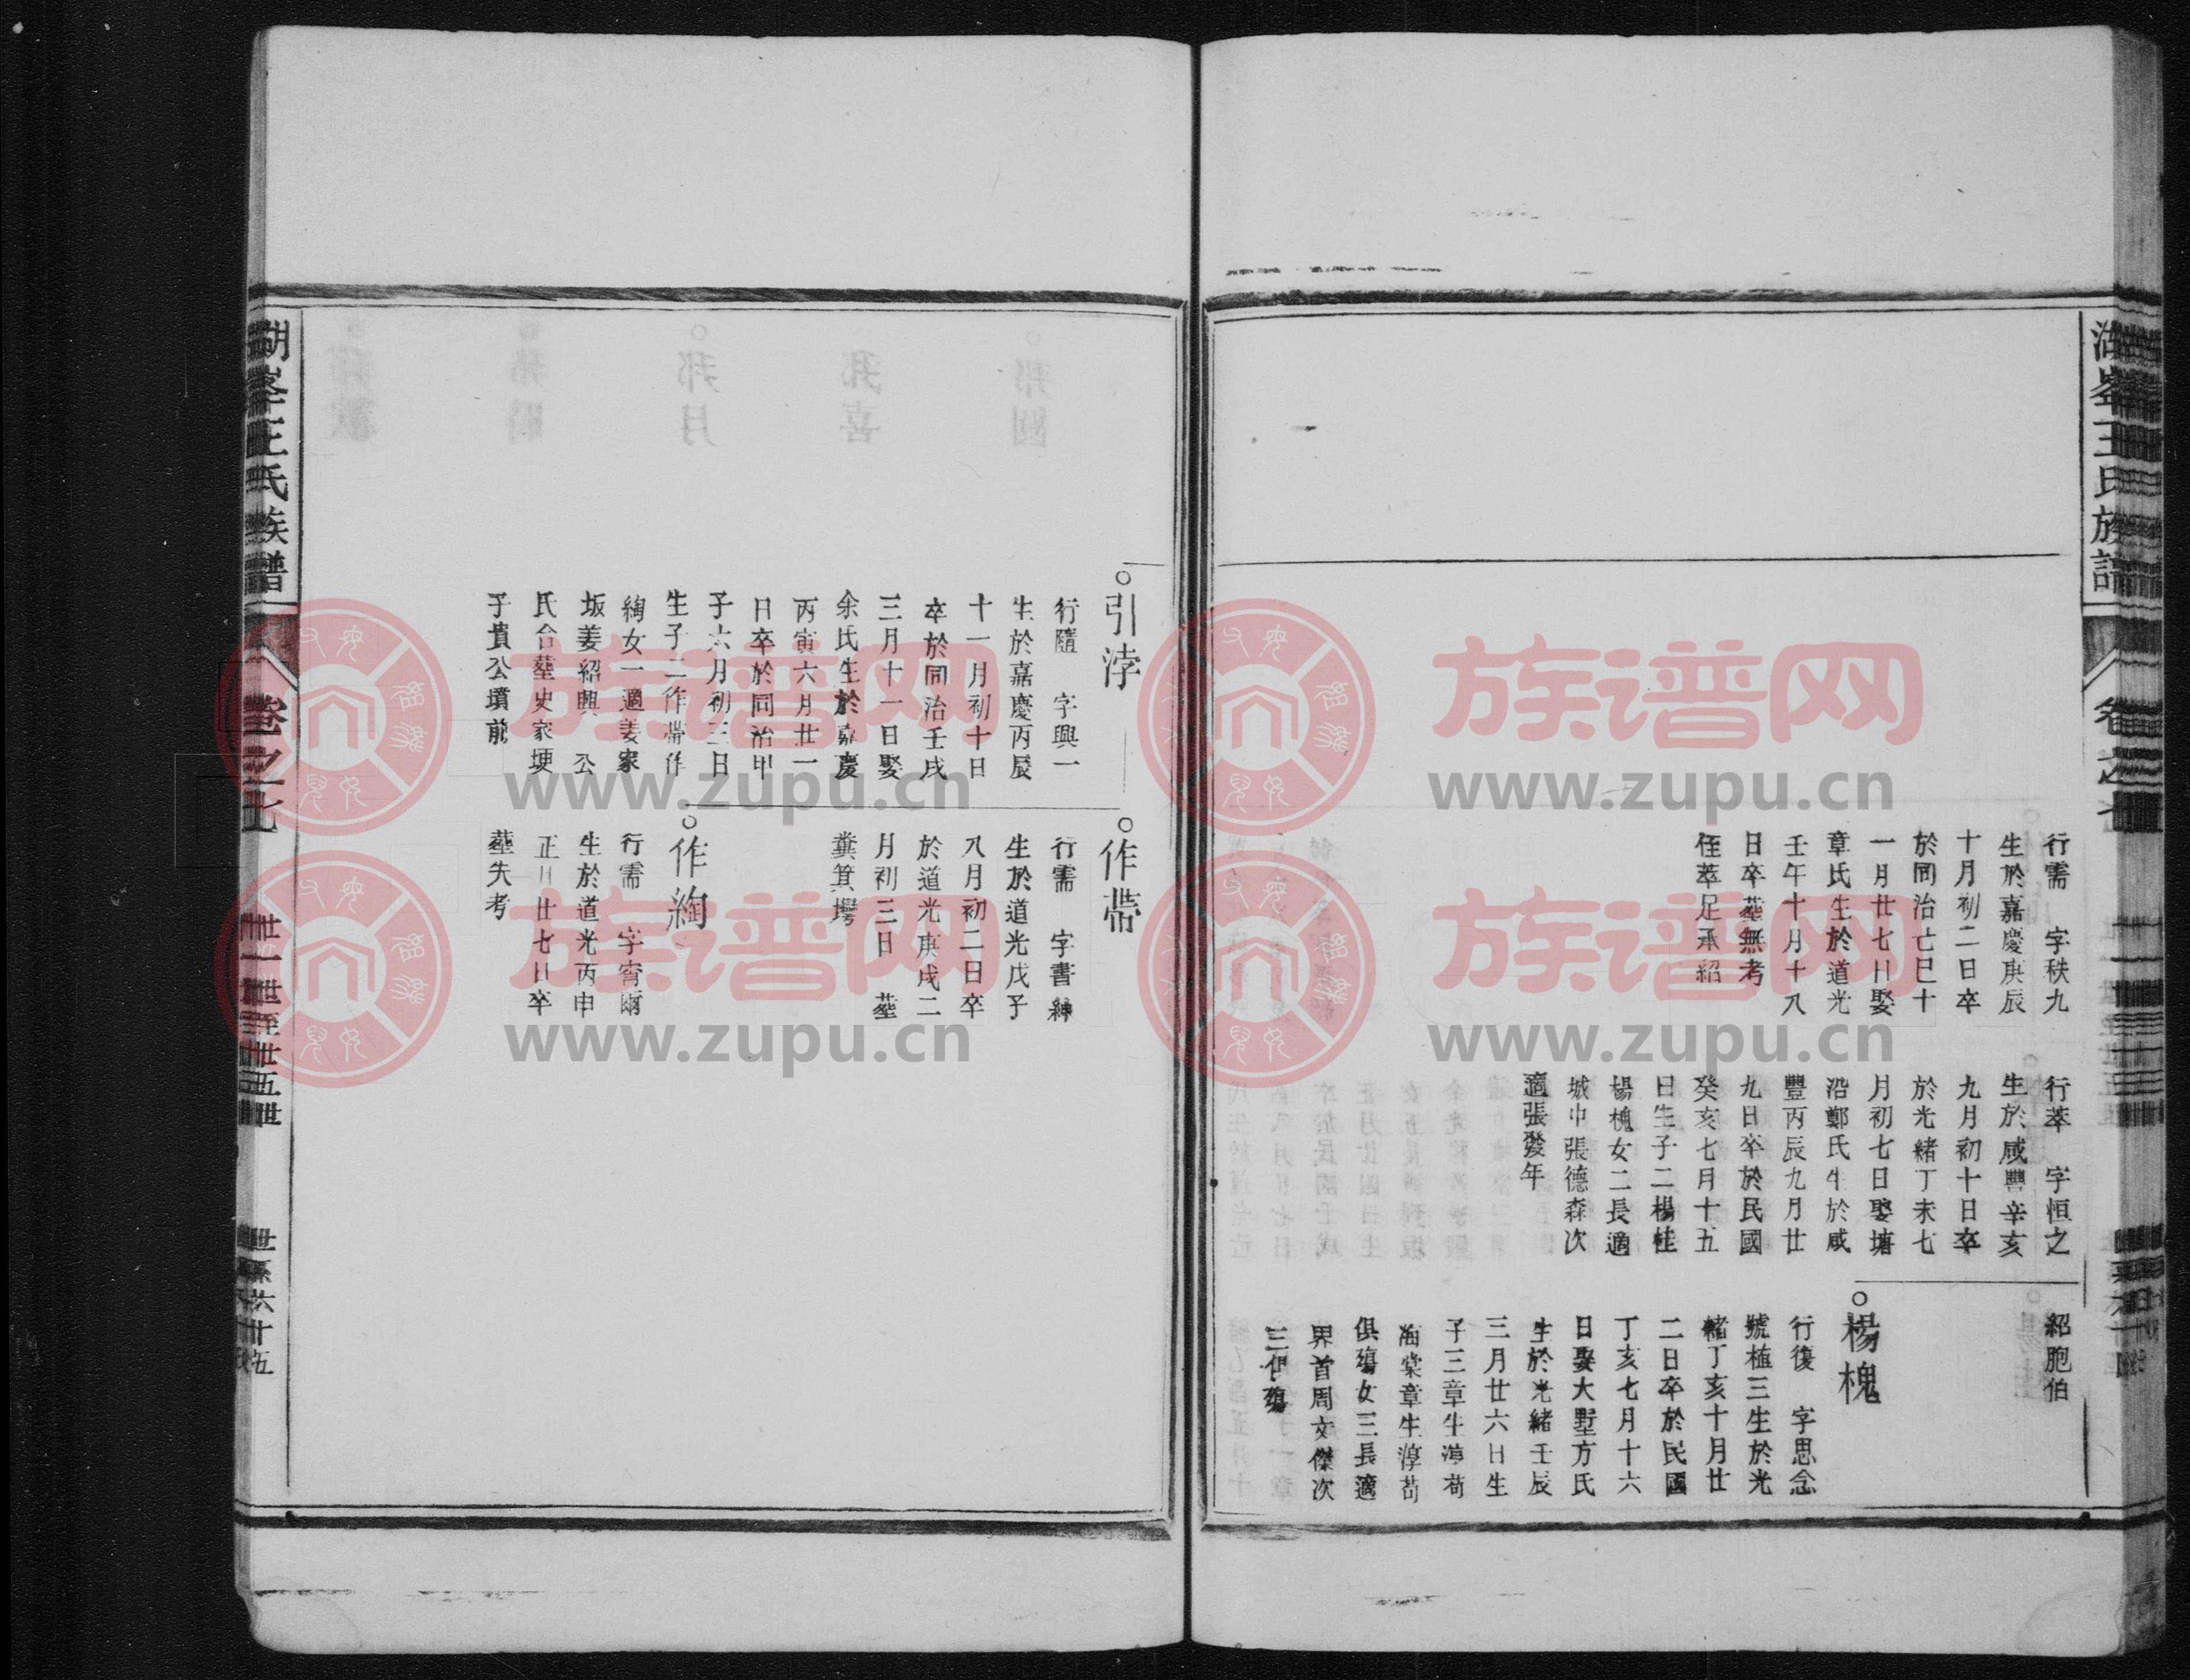 湖峯王氏族譜
卷之七
行需　字秩九
生於嘉慶庚辰
十月初二日卒
於同治亡巳十
一月廿七日娶
章氏生於道光
壬午十月十八
日卒　塟無考
侄萃足承紹
行萃　字恒之
生於咸豐辛亥
九月初十日卒
於光緒丁未七
月初七日娶塘
沿鄭氏生於咸
豐丙辰九月廿
九日卒於民國
癸亥七月十五
日生子二楊桂
楊槐女二長適
城巾張德森次
適張發年
紹胞伯
楊槐
行復　字思念
號植三生於光
緒丁亥十月廿
二日卒於民國
丁亥七月十六
日娶大墅方氏
生於光緒壬辰
三月廿六日生
子三章生淳苟
海棠章生淳苟
俱殤女三長適
界首周文傑次
三伊殤
引浡
行隨　字興一
生於嘉慶丙辰
十一月初十日
卒於同治壬戌
三月十一日娶
余氏生於嘉慶
丙寅六月廿一
日卒於同治甲
子六月初三日
生子二作帶作
絢女一適姜家
坂姜紹興　公
氏合塟史家埂
子貴公墳前
作帶
行需　字書紳
生於道光戊子
八月初二日卒
於道光庚戌二
月初三日　塟
糞箕塝
作絢
行需　字宵爾
生於道光丙申
正月廿七日卒
塟失考
湖峯王氏族譜
卷之七
卅一世至卅五世
世系六十五
族谱网
www.zupu.cn
族谱网
www.zupu.cn
族谱网
www.zupu.cn
族谱网
www.zupu.cn